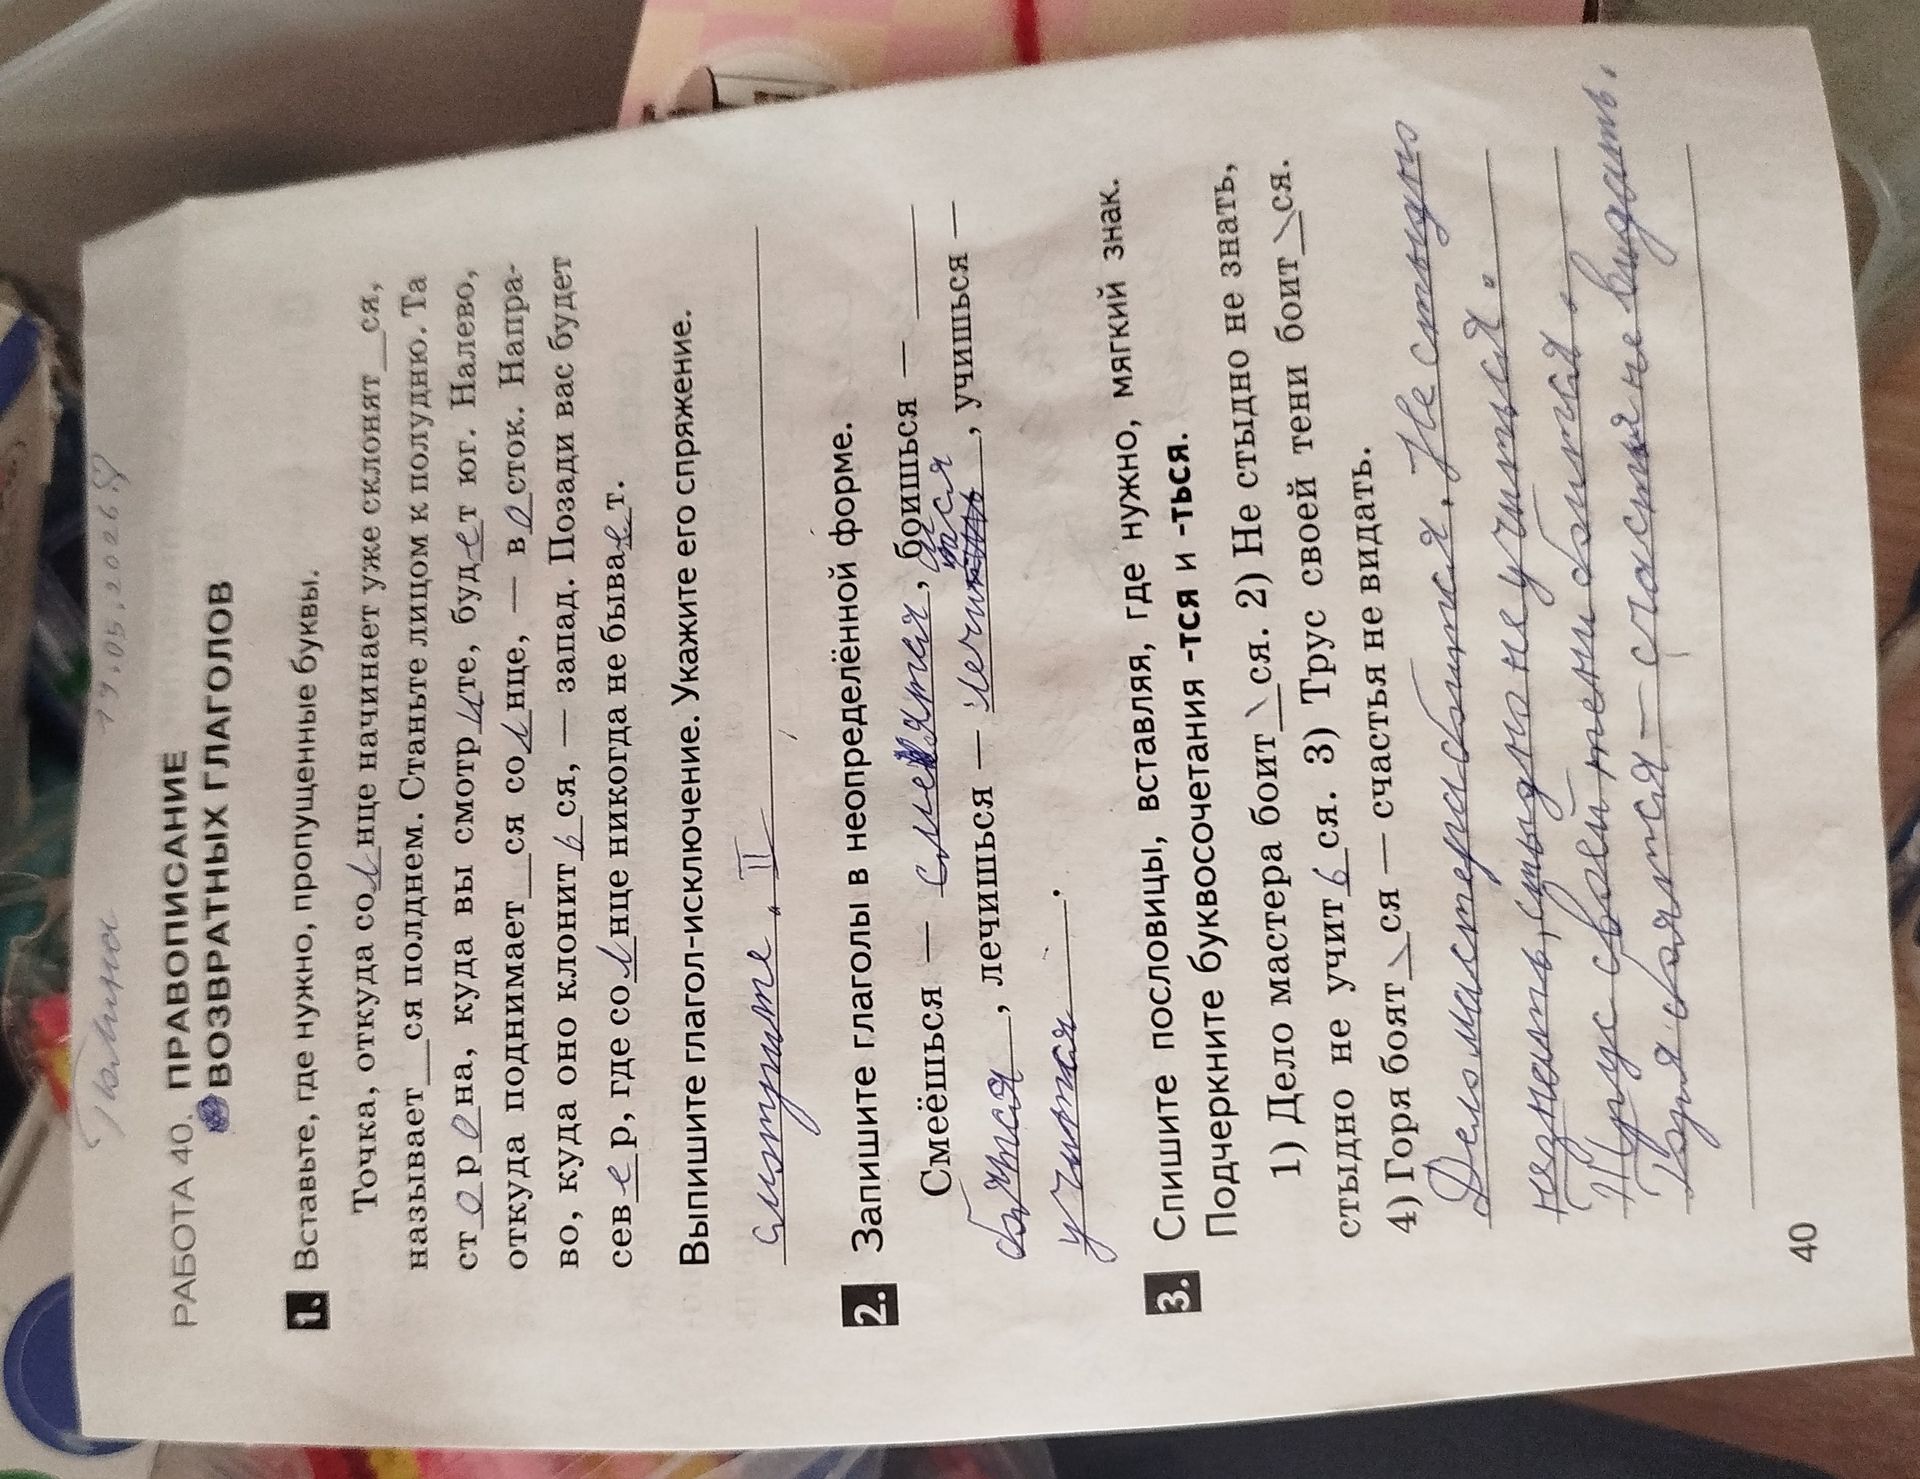 Галина 19.05.2026
РАБОТА 40. ПРАВОПИСАНИЕ
ВОЗВРАТНЫХ ГЛАГОЛОВ
1. Вставьте, где нужно, пропущенные буквы.
Точка, откуда солнце начинает уже склонят__ся,
называет__ся полднем. Станьте лицом к полудню. Та
сторона, куда вы смотрите, будет юг. Налево,
откуда поднимает__ся солнце, — восток. Напра-
во, куда оно клониться, — запад. Позади вас будет
север, где солнце никогда не бывает.
Выпишите глагол-исключение. Укажите его спряжение.
смтрите, II
2. Запишите глаголы в неопределённой форме.
Смеёшься — смеятся, боишься —
боятся, лечишься — лечится, учишься —
учится.
3. Спишите пословицы, вставляя, где нужно, мягкий знак.
Подчеркните буквосочетания -тся и -ться.
1) Дело мастера боит\ся. 2) Не стыдно не знать,
стыдно не учиться. 3) Трус своей тени боит\ся.
4) Горя боят\ся — счастья не видать.
Дело мастера боится. Не стыдно
не знать, стыдно не учиться.
Трус своей тени боится.
Горя боятся — счастья не видать.
40